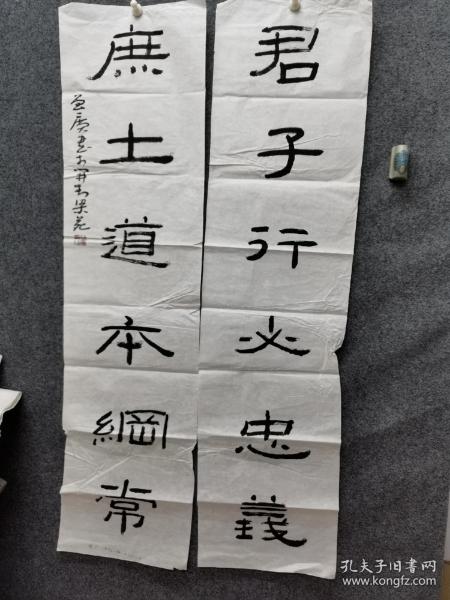 君子行必忠義
庶士道本綱常
孔夫子旧书网
www.kongfz.com